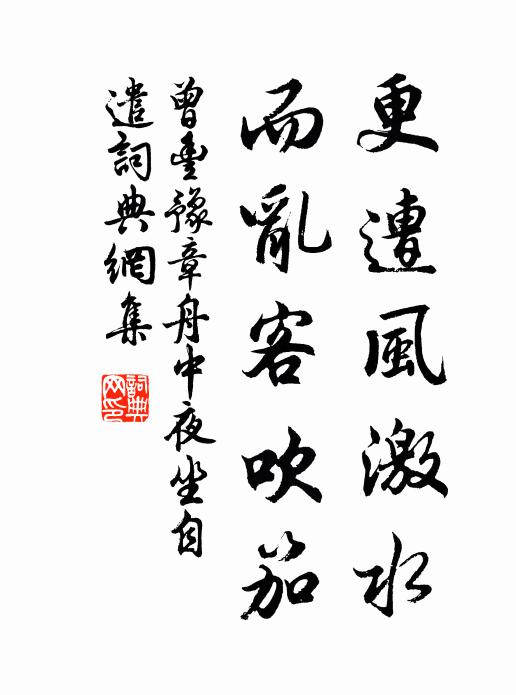 更遭風激水
而亂客吹笳
曾豐豫章舟中夜坐自
遣詞典網集
詞典
网印